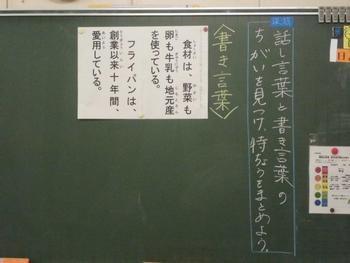 話し言葉と書き言葉の
ちがいを見つけ、特ちょうをまとめよう。
〈書き言葉〉
食材は、野菜も
卵も牛乳も地元産
を使っている。
フライパンは、
創業以来十年間、
愛用している。